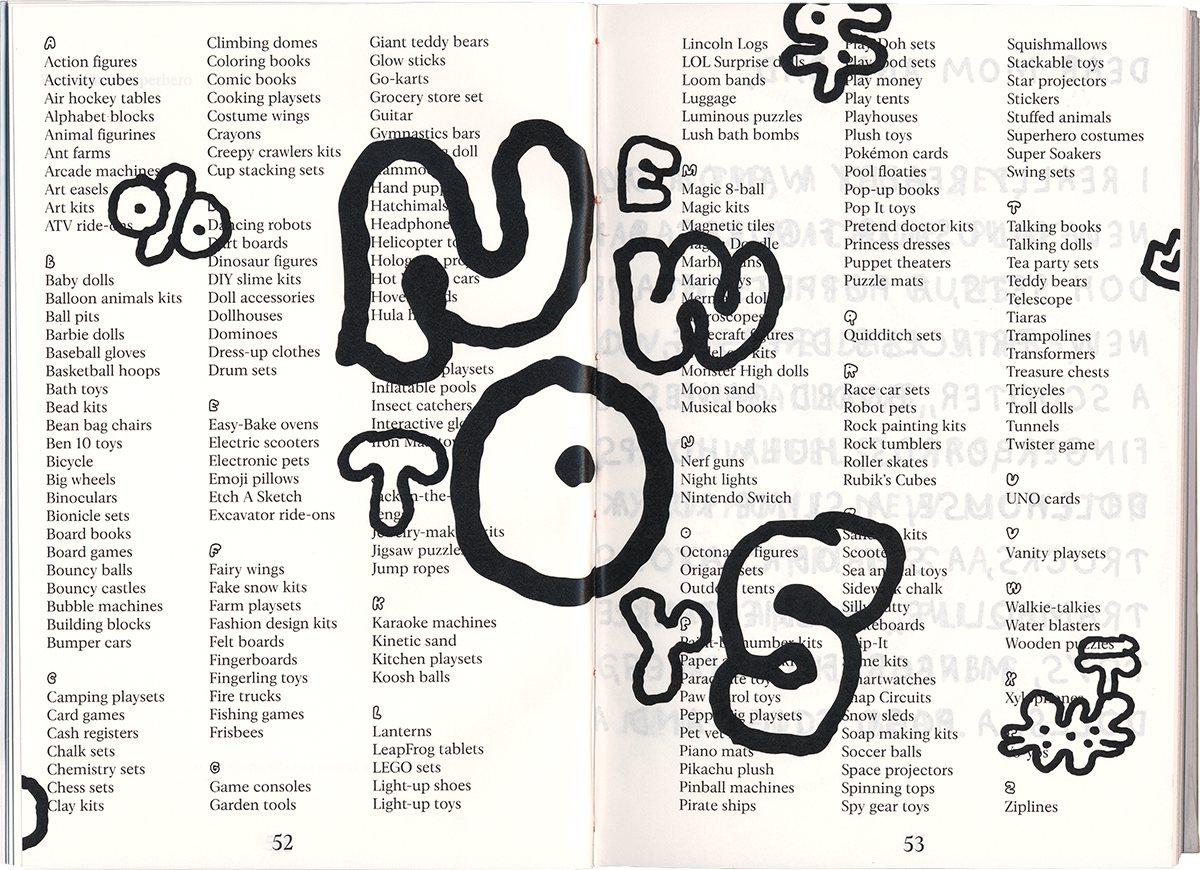 A
Action figures
Activity cubes
Air hockey tables
Alphabet blocks
Animal figurines
Ant farms
Arcade machines
Art easels
Art kits
ATV ride-ons
B
Baby dolls
Balloon animals kits
Ball pits
Barbie dolls
Baseball gloves
Basketball hoops
Bath toys
Bead kits
Bean bag chairs
Ben 10 toys
Bicycle
Big wheels
Binoculars
Bionicle sets
Board books
Board games
Bouncy balls
Bouncy castles
Bubble machines
Building blocks
Bumper cars
C
Camping playsets
Card games
Cash registers
Chalk sets
Chemistry sets
Chess sets
Clay kits
Climbing domes
Coloring books
Comic books
Cooking playsets
Costume wings
Crayons
Creepy crawlers kits
Cup stacking sets
D
Dancing robots
Dart boards
Dinosaur figures
DIY slime kits
Doll accessories
Dollhouses
Dominoes
Dress-up clothes
Drum sets
E
Easy-Bake ovens
Electric scooters
Electronic pets
Emoji pillows
Etch A Sketch
Excavator ride-ons
F
Fairy wings
Fake snow kits
Farm playsets
Fashion design kits
Felt boards
Fingerboards
Fingerling toys
Fire trucks
Fishing games
Frisbees
G
Game consoles
Garden tools
Giant teddy bears
Glow sticks
Go-karts
Grocery store set
Guitar
Gymnastics bars
doll
Hand
Hatchimals
Headphone
Helicopter
Hot cars
Hula
playsets
Inflatable pools
Insect catchers
Interactive
Iron Man
Jewelry-making kits
Jigsaw puzzle
Jump ropes
K
Karaoke machines
Kinetic sand
Kitchen playsets
Koosh balls
L
Lanterns
LeapFrog tablets
LEGO sets
Light-up shoes
Light-up toys
52
NEW
TOYS
Lincoln Logs
LOL Surprise dolls
Loom bands
Luggage
Luminous puzzles
Lush bath bombs
M
Magic 8-ball
Magic kits
Magnetic tiles
Magna Doodle
Mario toys
Mermaid dolls
Minecraft figures
Model kits
Monster High dolls
Moon sand
Musical books
N
Nerf guns
Night lights
Nintendo Switch
O
Octonauts figures
Origami sets
Outdoor tents
P
Paint-by-number kits
Paper
Parachute toys
Paw Patrol toys
Peppa Pig playsets
Pet vet
Piano mats
Pikachu plush
Pinball machines
Pirate ships
Play-Doh sets
Play food sets
Play money
Play tents
Playhouses
Plush toys
Pokémon cards
Pool floaties
Pop-up books
Pop It toys
Pretend doctor kits
Princess dresses
Puppet theaters
Puzzle mats
Q
Quidditch sets
R
Race car sets
Robot pets
Rock painting kits
Rock tumblers
Roller skates
Rubik's Cubes
S
kits
Sea animal toys
Sidewalk chalk
Silly Putty
Skateboards
Skip-It
Slime kits
Smartwatches
Snap Circuits
Snow sleds
Soap making kits
Soccer balls
Space projectors
Spinning tops
Spy gear toys
Squishmallows
Stackable toys
Star projectors
Stickers
Stuffed animals
Superhero costumes
Super Soakers
Swing sets
T
Talking books
Talking dolls
Tea party sets
Teddy bears
Telescope
Tiaras
Trampolines
Transformers
Treasure chests
Tricycles
Troll dolls
Tunnels
Twister game
U
UNO cards
V
Vanity playsets
W
Walkie-talkies
Water blasters
Wooden puzzles
X
Xylophones
Z
Ziplines
53